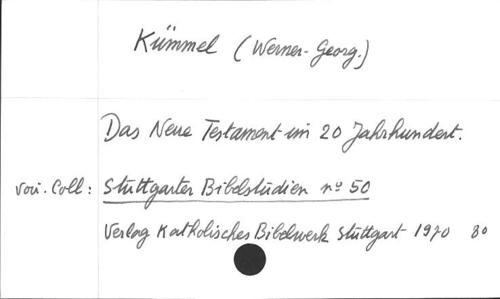 Kümmel (Werner-Georg.)
Das Neue Testament im 20 Jahrhundert.
voir. Coll: Stuttgarter Bibelstudien nº 50
Verlag Katholisches Bibelwerk Stuttgart 1970 80